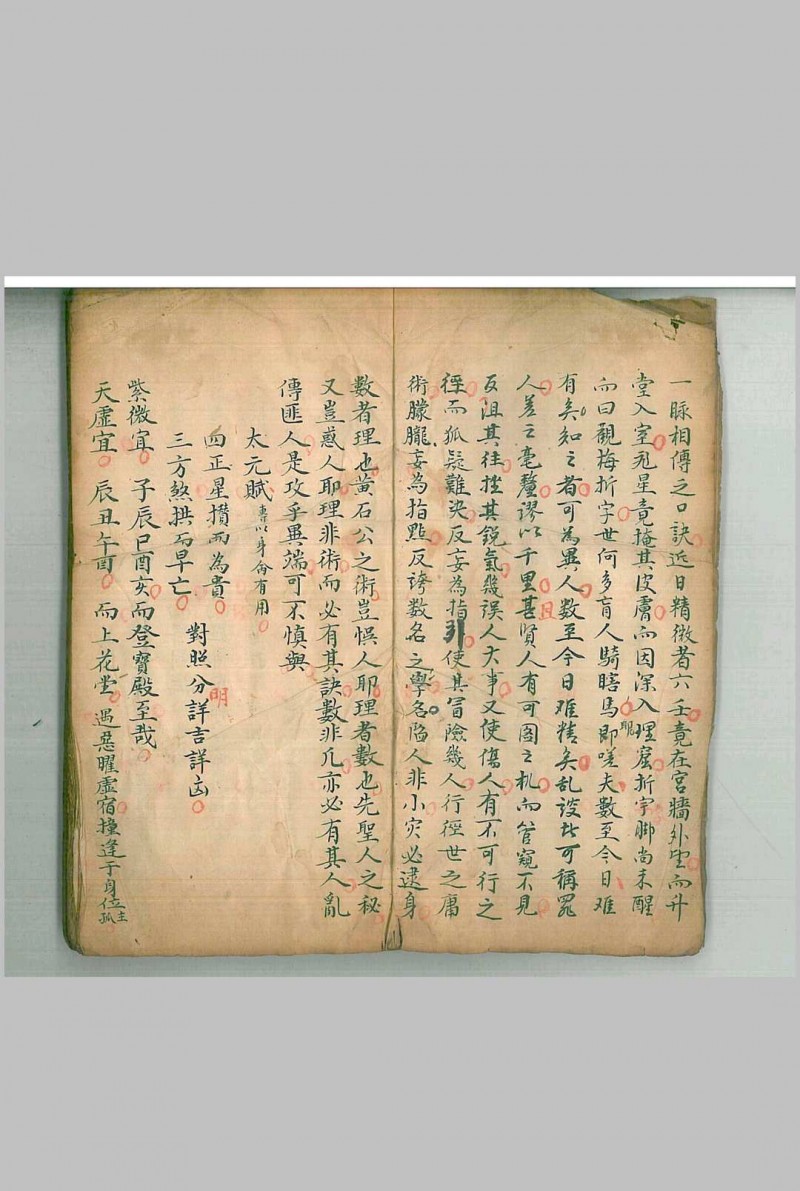 一脉相傳之口訣近日精微者六壬竟在宮牆外望而升
堂入室孔星竟掩其皮膚而因深入理窟折字脚尚未醒
而曰觀梅折字世何多盲人騎瞎馬即嗟夫數至今日难
有矣知之者可為異人數至今日难精矣乱談此可稱罪
人差之毫釐謬以千里甚且賢人有可圖之机而管窺不見
反沮其往挫其鋭氣幾誤人大事又使傷人有不可行之
徑而狐疑難決反妄為指引使其冒險幾人行徑世之庸
術朦朧妄為指點反誇数名之學名陷人非小灾必逮身
數者理也黄石公之術豈悮人耶理者數也先聖人之秘
又豈惑人耶理非術而必有其訣數非凡亦必有其人亂
傳匪人是攻乎異端可不慎與
太元賦 專以身命有用
四正星攢而為貴
三方煞拱而早亡 對照分明詳吉詳凶
紫微宜 子辰巳酉亥而登寶殿至哉
天虚宜 辰丑午酉 而上花堂 遇惡曜虚宿撞逢于身位主孤